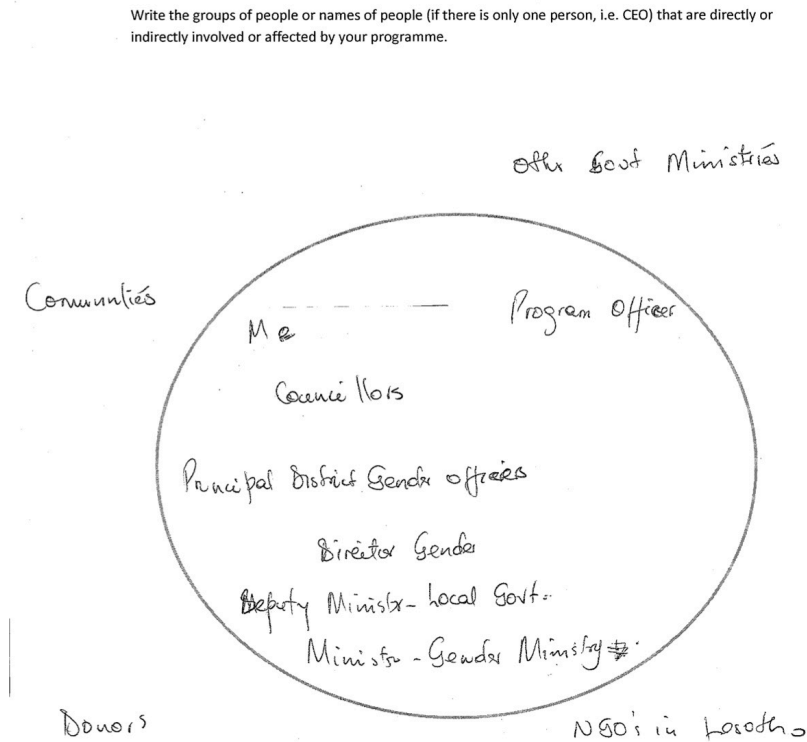 Write the groups of people or names of people (if there is only one person, i.e. CEO) that are directly or
indirectly involved or affected by your programme.
Other Govt Ministries
Communities
Program Officer
Me
Councillors
Principal District Gender officers
Director Gender
Deputy Ministr- Local Govt.
Ministr - Gender Ministry
Donors
NGO's in Lesotho